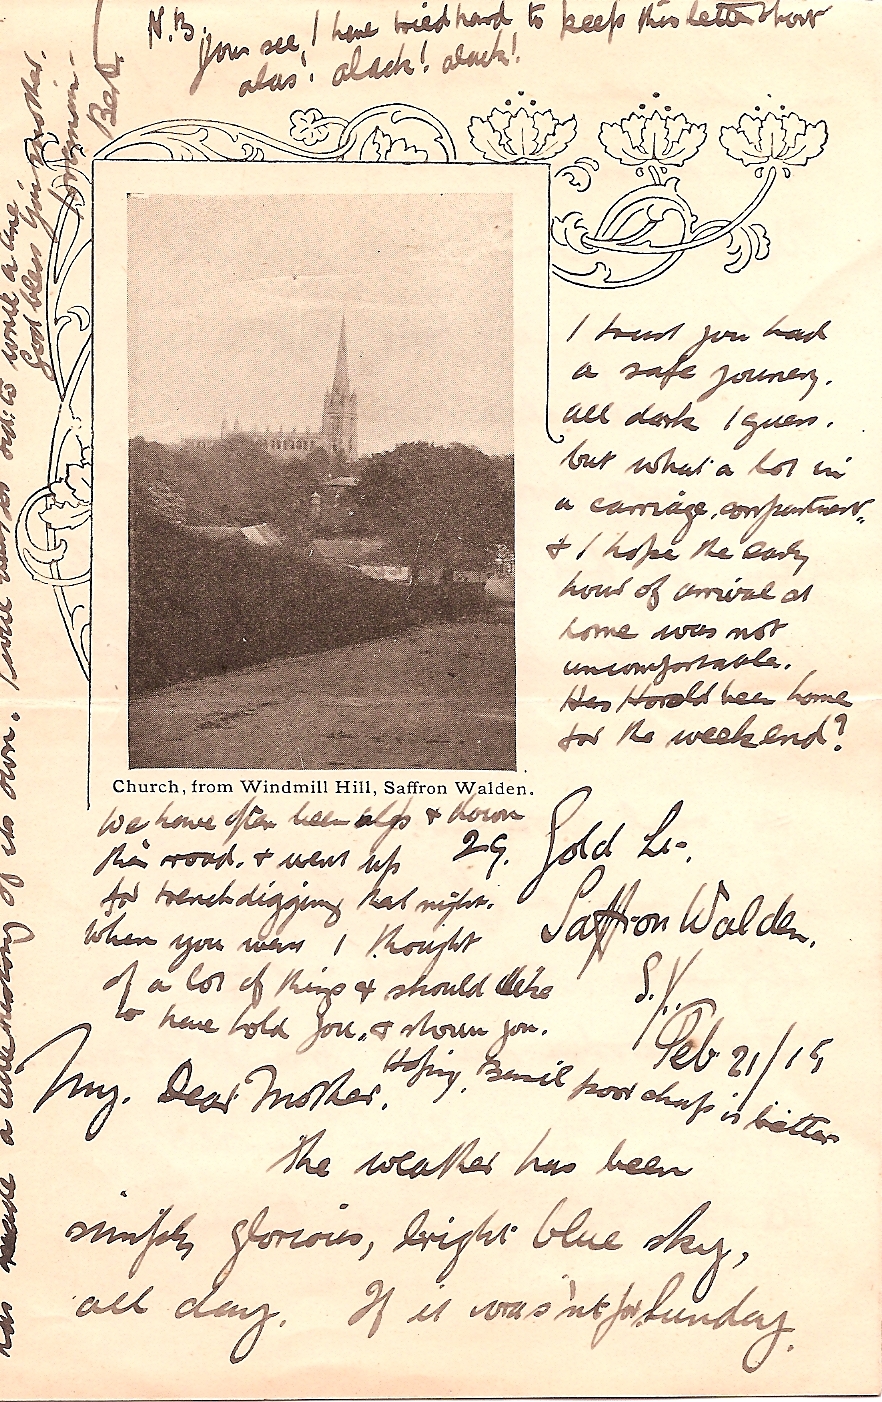 N.B. You see, I have tried hard to keep this letter short
alas! alack! alack!
I trust you had
a safe journey.
all dark I guess.
but what a lot in
a carriage compartment.
& I hope the early
hour of arrival at
home was not
uncomfortable.
Has Harold been home
for the weekend?
Church, from Windmill Hill, Saffron Walden.
We have often been up & down
this road. & went up
for trench digging that night.
When you were I thought
of a lot of things & should like
to have told you, & shown you.
29. Gold Ln.
Saffron Walden.
Feb 21/15
My. Dear Mother.
Hoping, poor chap is better
the weather has been
simply glorious, bright blue sky,
all day. If it was'nt for Sunday.
has made a little history of its own. I will to write a line
God bless you mother.
Bert.